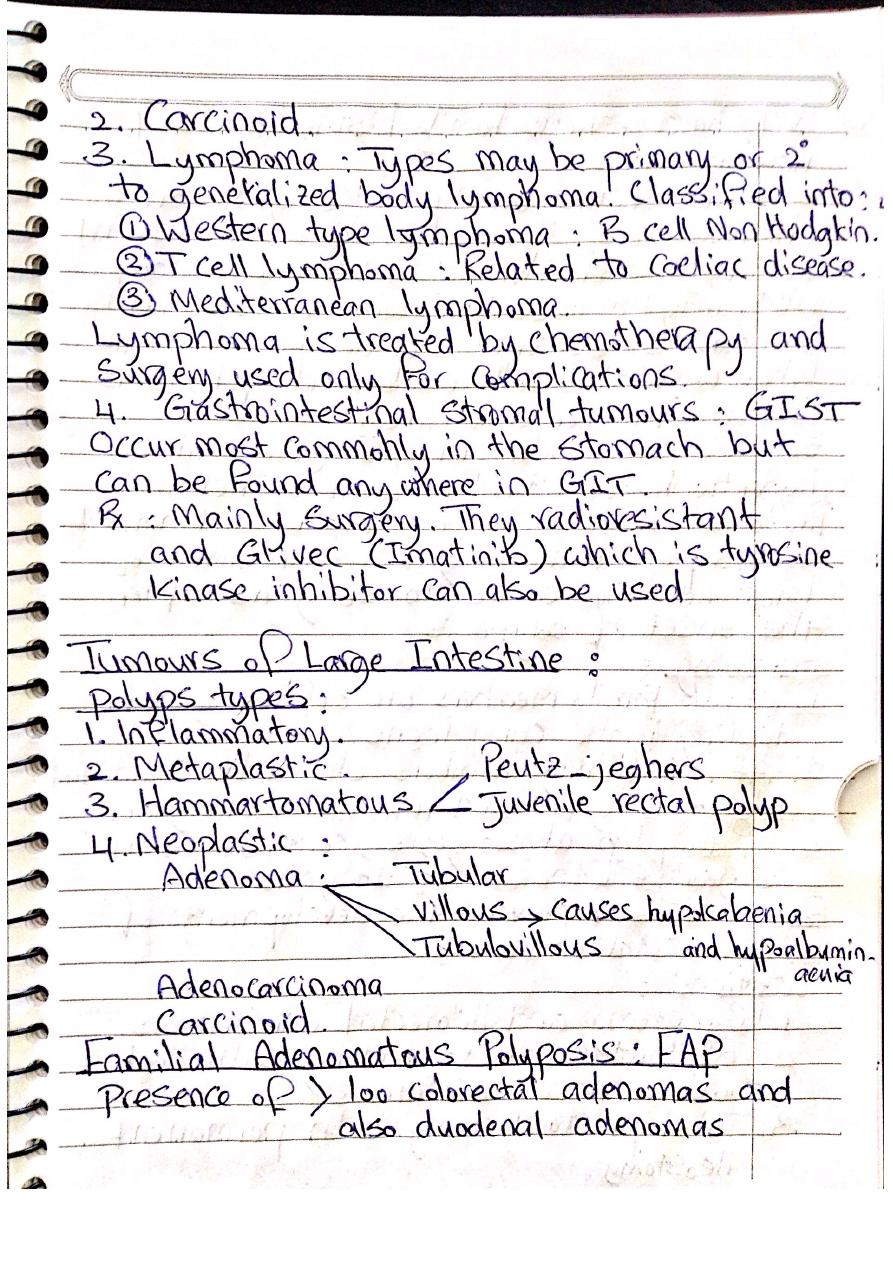 2. Carcinoid.
3. Lymphoma : Types may be primary or 2°
to generalized body lymphoma. Classified into:
① Western type lymphoma : B cell Non Hodgkin.
② T cell lymphoma : Related to Coeliac disease.
③ Mediterranean lymphoma.
Lymphoma is treated by chemotherapy and
Surgery used only for complications.
4. Gastrointestinal Stromal tumours : GIST
Occur most commonly in the stomach but
can be found anywhere in GIT.
Rx : Mainly Surgery. They radioresistant
and Glivec (Imatinib) which is tyrosine
kinase inhibitor can also be used
Tumours of Large Intestine :
Polyps types :
1. Inflammatory.
2. Metaplastic.
3. Hammartomatous < Peutz-jeghers
Juvenile rectal polyp
4. Neoplastic :
Adenoma : Tubular
Villous → causes hypokalaemia
Tubulovillous and hypoalbumin-
aemia
Adenocarcinoma
Carcinoid.
Familial Adenomatous Polyposis : FAP
Presence of > 100 colorectal adenomas and
also duodenal adenomas